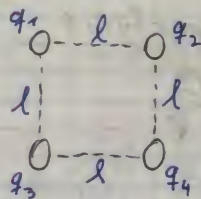 q1 l q2
l l
q3 l q4